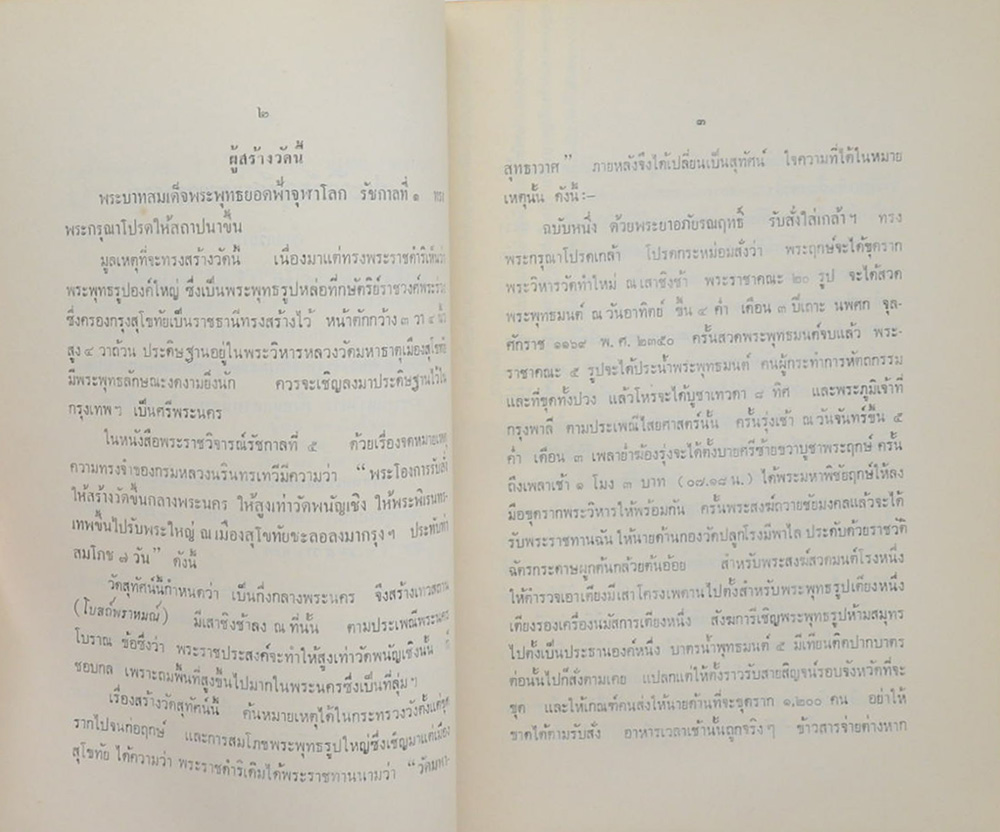 ๒
ผู้สร้างวัดนี้
พระบาทสมเด็จพระพุทธยอดฟ้าจุฬาโลก รัชกาลที่ ๑ ทรง
พระกรุณาโปรดให้สถาปนาขึ้น
มูลเหตุที่จะทรงสร้างวัดนี้ เนื่องมาแต่ทรงพระราชดำริเห็นว่า
พระพุทธรูปองค์ใหญ่ ซึ่งเป็นพระพุทธรูปหล่อที่กษัตริย์ราชวงศ์พระร่วง
ซึ่งครองกรุงสุโขทัยเป็นราชธานีทรงสร้างไว้ หน้าตักกว้าง ๓ วา ๔ นิ้ว
สูง ๔ วาถ้วน ประดิษฐานอยู่ในพระวิหารหลวงวัดมหาธาตุเมืองสุโขทัย
มีพระพุทธลักษณะงดงามยิ่งนัก ควรจะเชิญลงมาประดิษฐานไว้ใน
กรุงเทพฯ เป็นศรีพระนคร
ในหนังสือพระราชวิจารณ์รัชกาลที่ ๕ ด้วยเรื่องจดหมายเหตุ
ความทรงจำของกรมหลวงนรินทรเทวีมีความว่า “พระโองการรับสั่ง
ให้สร้างวัดขึ้นกลางพระนคร ให้สูงเท่าวัดพนัญเชิง ให้พระพิเรนทร-
เทพขึ้นไปรับพระใหญ่ ณ เมืองสุโขทัยชะลอลงมากรุงฯ ประทับท่า
สมโภช ๗ วัน” ดังนี้
วัดสุทัศน์นี้กำหนดว่า เป็นกึ่งกลางพระนคร จึงสร้างเทวสถาน
(โบสถ์พราหมณ์) มีเสาชิงช้าลง ณ ที่นั้น ตามประเพณีพระนคร
โบราณ ข้อซึ่งว่า พระราชประสงค์จะทำให้สูงเท่าวัดพนัญเชิงนั้น ก็
ชอบกล เพราะถมพื้นที่สูงขึ้นไปมากในพระนครซึ่งเป็นที่ลุ่มฯ
เรื่องสร้างวัดสุทัศน์นั้น ค้นหมายเหตุได้ในกระทรวงวังตั้งแต่ขุด
รากไปจนก่อฤกษ์ และการสมโภชพระพุทธรูปใหญ่ซึ่งเชิญมาแต่เมือง
สุโขทัย ได้ความว่า พระราชดำริเดิมได้พระราชทานนามว่า “วัดมหา-
๓
สุทธาวาศ” ภายหลังจึงได้เปลี่ยนเป็นสุทัศน์ ใจความที่ได้ในหมาย
เหตุนั้น ดังนี้:-
ฉบับหนึ่ง ด้วยพระยาอภัยรณฤทธิ์ รับสั่งใส่เกล้าฯ ทรง
พระกรุณาโปรดเกล้า โปรดกระหม่อมสั่งว่า พระฤกษ์จะได้ขุดราก
พระวิหารวัดทำใหม่ ณ เสาชิงช้า พระราชาคณะ ๒๐ รูป จะได้สวด
พระพุทธมนต์ ณ วันอาทิตย์ ขึ้น ๔ ค่ำ เดือน ๓ ปีเถาะ นพศก จุล-
ศักราช ๑๑๖๙ พ.ศ. ๒๓๕๐ ครั้นสวดพระพุทธมนต์จบแล้ว พระ-
ราชาคณะ ๕ รูปจะได้ประน้ำพระพุทธมนต์ คนผู้กระทำการหัตถกรรม
และที่ขุดทั้งปวง แล้วโหรจะได้บูชาเทวดา ๘ ทิศ และพระภูมิเจ้าที่
กรุงพาลี ตามประเพณีไสยศาสตร์นั้น ครั้นรุ่งเช้า ณ วันจันทร์ขึ้น ๕
ค่ำ เดือน ๓ เพลาย่ำฆ้องรุ่งจะได้ตั้งบายศรีซ้ายขวาบูชาพระฤกษ์ ครั้น
ถึงเพลาเช้า ๑ โมง ๓ บาท (๐๗.๑๘ น.) ได้พระมหาพิชัยฤกษ์ให้ลง
มือขุดรากพระวิหารให้พร้อมกัน ครั้นพระสงฆ์ถวายชัยมงคลแล้วจะได้
รับพระราชทานฉัน ให้นายด้านกองวัดปลูกโรงมีพาไล ประดับด้วยราชวัติ
ฉัตรกระดาษผูกต้นกล้วยต้นอ้อย สำหรับพระสงฆ์สวดมนต์โรงหนึ่ง
ให้ตำรวจเอาเตียงมีเสาโครงเพดานไปตั้งสำหรับพระพุทธรูปเตียงหนึ่ง
เตียงรองเครื่องนมัสการเตียงหนึ่ง สังฆการีเชิญพระพุทธรูปห้ามสมุทร
ไปตั้งเป็นประธานองค์หนึ่ง บาตรน้ำพุทธมนต์ ๕ มีเทียนติดปากบาตร
ต่อนั้นไปก็สั่งตามเคย แปลกแต่ให้ตั้งราวรับสายสิญจน์รอบจังหวัดที่จะ
ขุด และให้เกณฑ์คนส่งให้นายด้านที่จะขุดราก ๑,๒๐๐ คน อย่าให้
ขาดได้ตามรับสั่ง อาหารเวลาเช้านั้นถูกจริงๆ ข้าวสารจ่ายต่างหาก